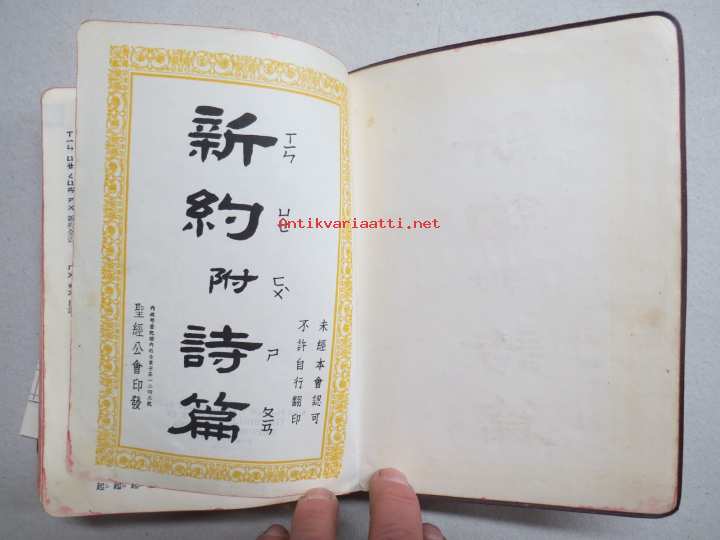 新約附詩篇
ㄒㄧㄣ ㄩㄝ ㄈㄨˋ ㄕ ㄆㄧㄢ
未經本會認可
不許自行翻印
聖經公會印發
antikvariaatti.net